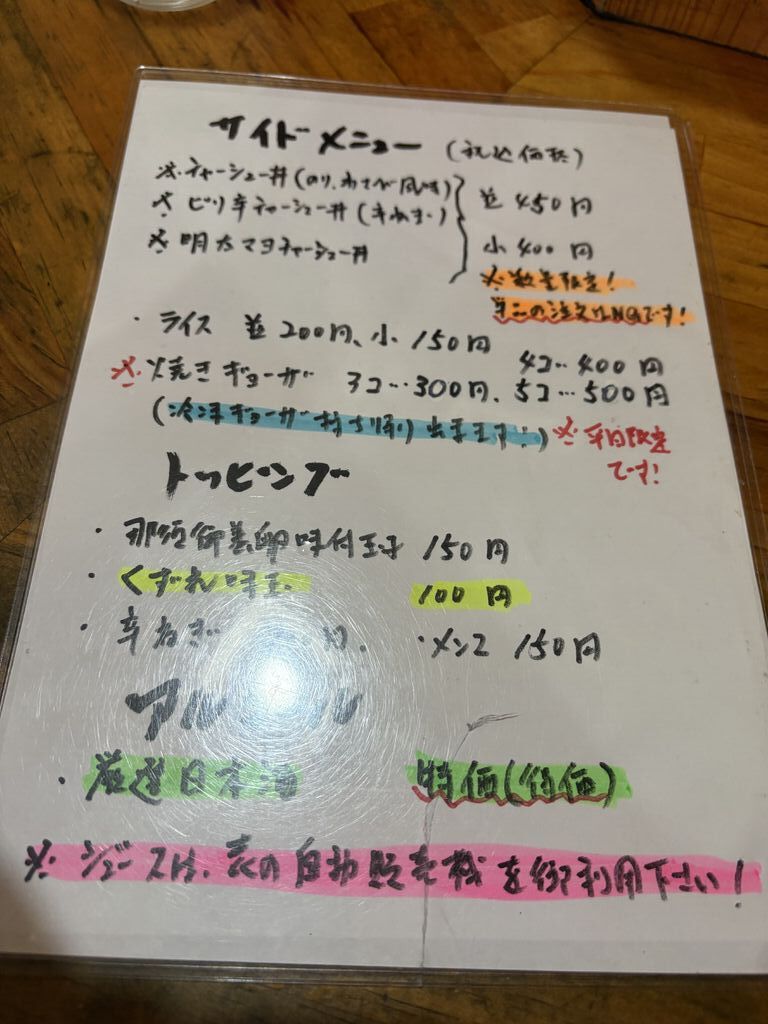 サイドメニュー (税込価格)
※チャーシュー丼(のり、わさび風味)
※ピリ辛チャーシュー丼(辛ねぎ)
※明太マヨチャーシュー丼
並 450円
小 400円
※数量限定!
のみの注文はNGです!
・ライス 並 200円、小 150円
4コ…400円
※焼きギョーザ 3コ…300円、5コ…500円
(冷凍ギョーザ持ち帰り出来ます!)
※平日限定
です!
トッピング
・那須御養卵味付玉子 150円
・くずれ味玉 100円
・辛ねぎ 円、・メンマ 150円
アルコール
・厳選日本酒 特価(特価)
※ジュースは、表の自動販売機を御利用下さい!